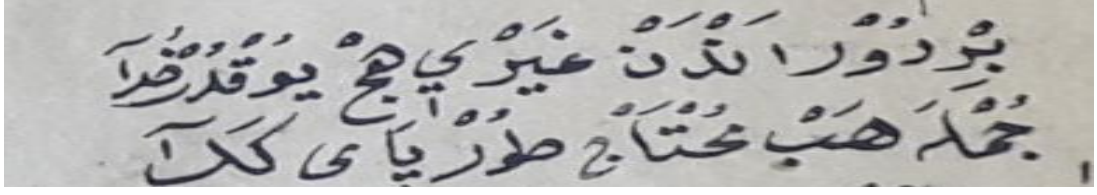 بِرْ دُوْرُ اَنْدَنْ غَيْرِي هِچْ يُوقْدُرْ خُدَا
جُمْلَه هَبْ مُحْتَاجْ طُوْرُرْ يَاى كَدَا